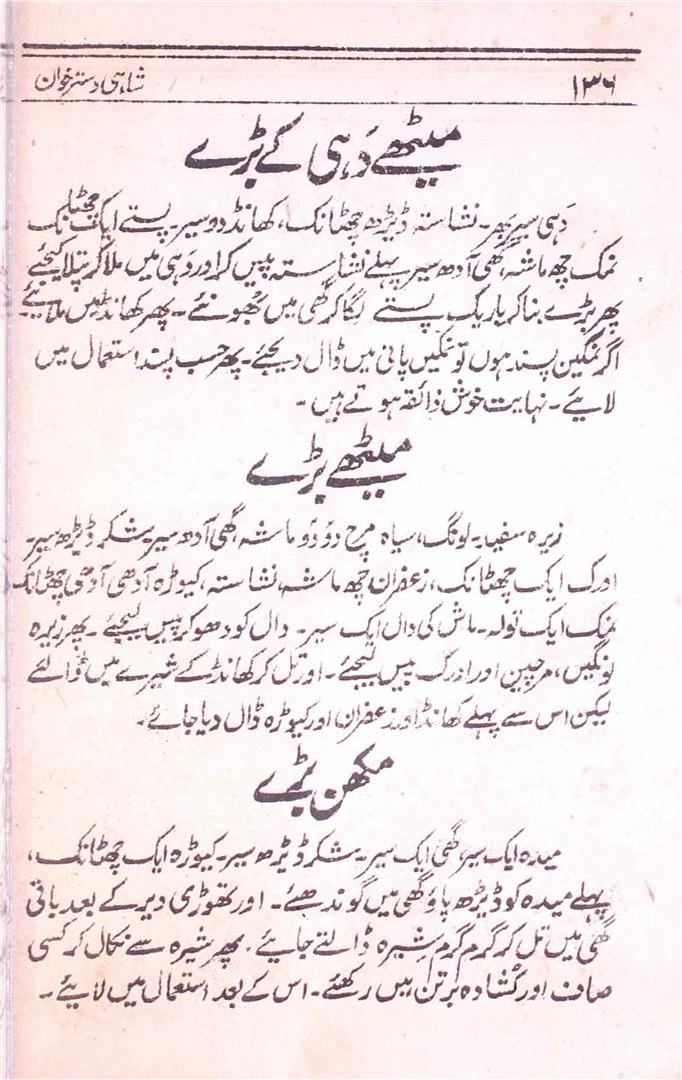 ۱۳۶ شاہی دسترخوان
میٹھے دَہی کے بڑے
دَہی سیر بھر۔ نشاستہ ڈیڑھ چھٹانک، کھانڈ دو سیر۔ پستے ایک چھٹانک
نمک چھ ماشہ، گھی آدھ سیر پہلے نشاستہ پیس کر اور دَہی میں ملا کر پتلا کیجئے
پھر بڑے بنا کر باریک پستے لگا کر گھی میں بُھونئے۔ پھر کھانڈ میں ملائیے
اگر نمکین پسند ہوں تو نمکین پانی میں ڈال دیجئے۔ پھر حسب پسند استعمال میں
لائیے۔ نہایت خوش ذائقہ ہوتے ہیں۔
میٹھے بڑے
زیرہ سفید۔ لونگ، سیاہ مرچ دَو دَو ماشہ، گھی آدھ سیر۔ شکر ڈیڑھ سیر۔
ادرک ایک چھٹانک، زعفران چھ ماشہ، نشاستہ، کیوڑہ آدھی آدھی چھٹانک
نمک ایک تولہ۔ ماش کی دال ایک سیر۔ دال کو دھو کر پیس لیجئے۔ پھر زیرہ
لونگیں، مرچیں اور ادرک پیس لیجئے۔ اور تل کر کھانڈ کے شیرے میں ڈالئے
لیکن اس سے پہلے کھانڈ اور زعفران اور کیوڑہ ڈال دیا جائے۔
مکھن بڑے
میدہ ایک سیر گھی ایک سیر۔ شکر ڈیڑھ سیر۔ کیوڑہ ایک چھٹانک،
پہلے میدہ کو ڈیڑھ پاؤ گھی میں گوندھئے۔ اور تھوڑی دیر کے بعد باقی
گھی میں تل کر گرم گرم شِیرہ ڈالتے جائیے۔ پھر شیرہ سے نکال کر کسی
صاف اور کُشادہ برتن میں رکھئے۔ اس کے بعد استعمال میں لائیے۔